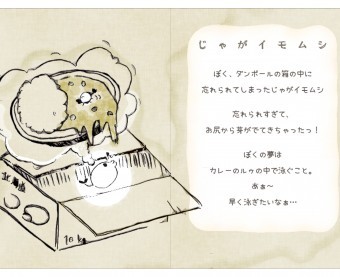 じゃがイモムシ
ぼく、ダンボールの箱の中に
忘れられてしまったじゃがイモムシ
忘れられすぎて、
お尻から芽がでてきちゃったっ！
ぼくの夢は
カレーのルゥの中で泳ぐこと。
あぁ〜
早く泳ぎたいなぁ…
北海道
10kg